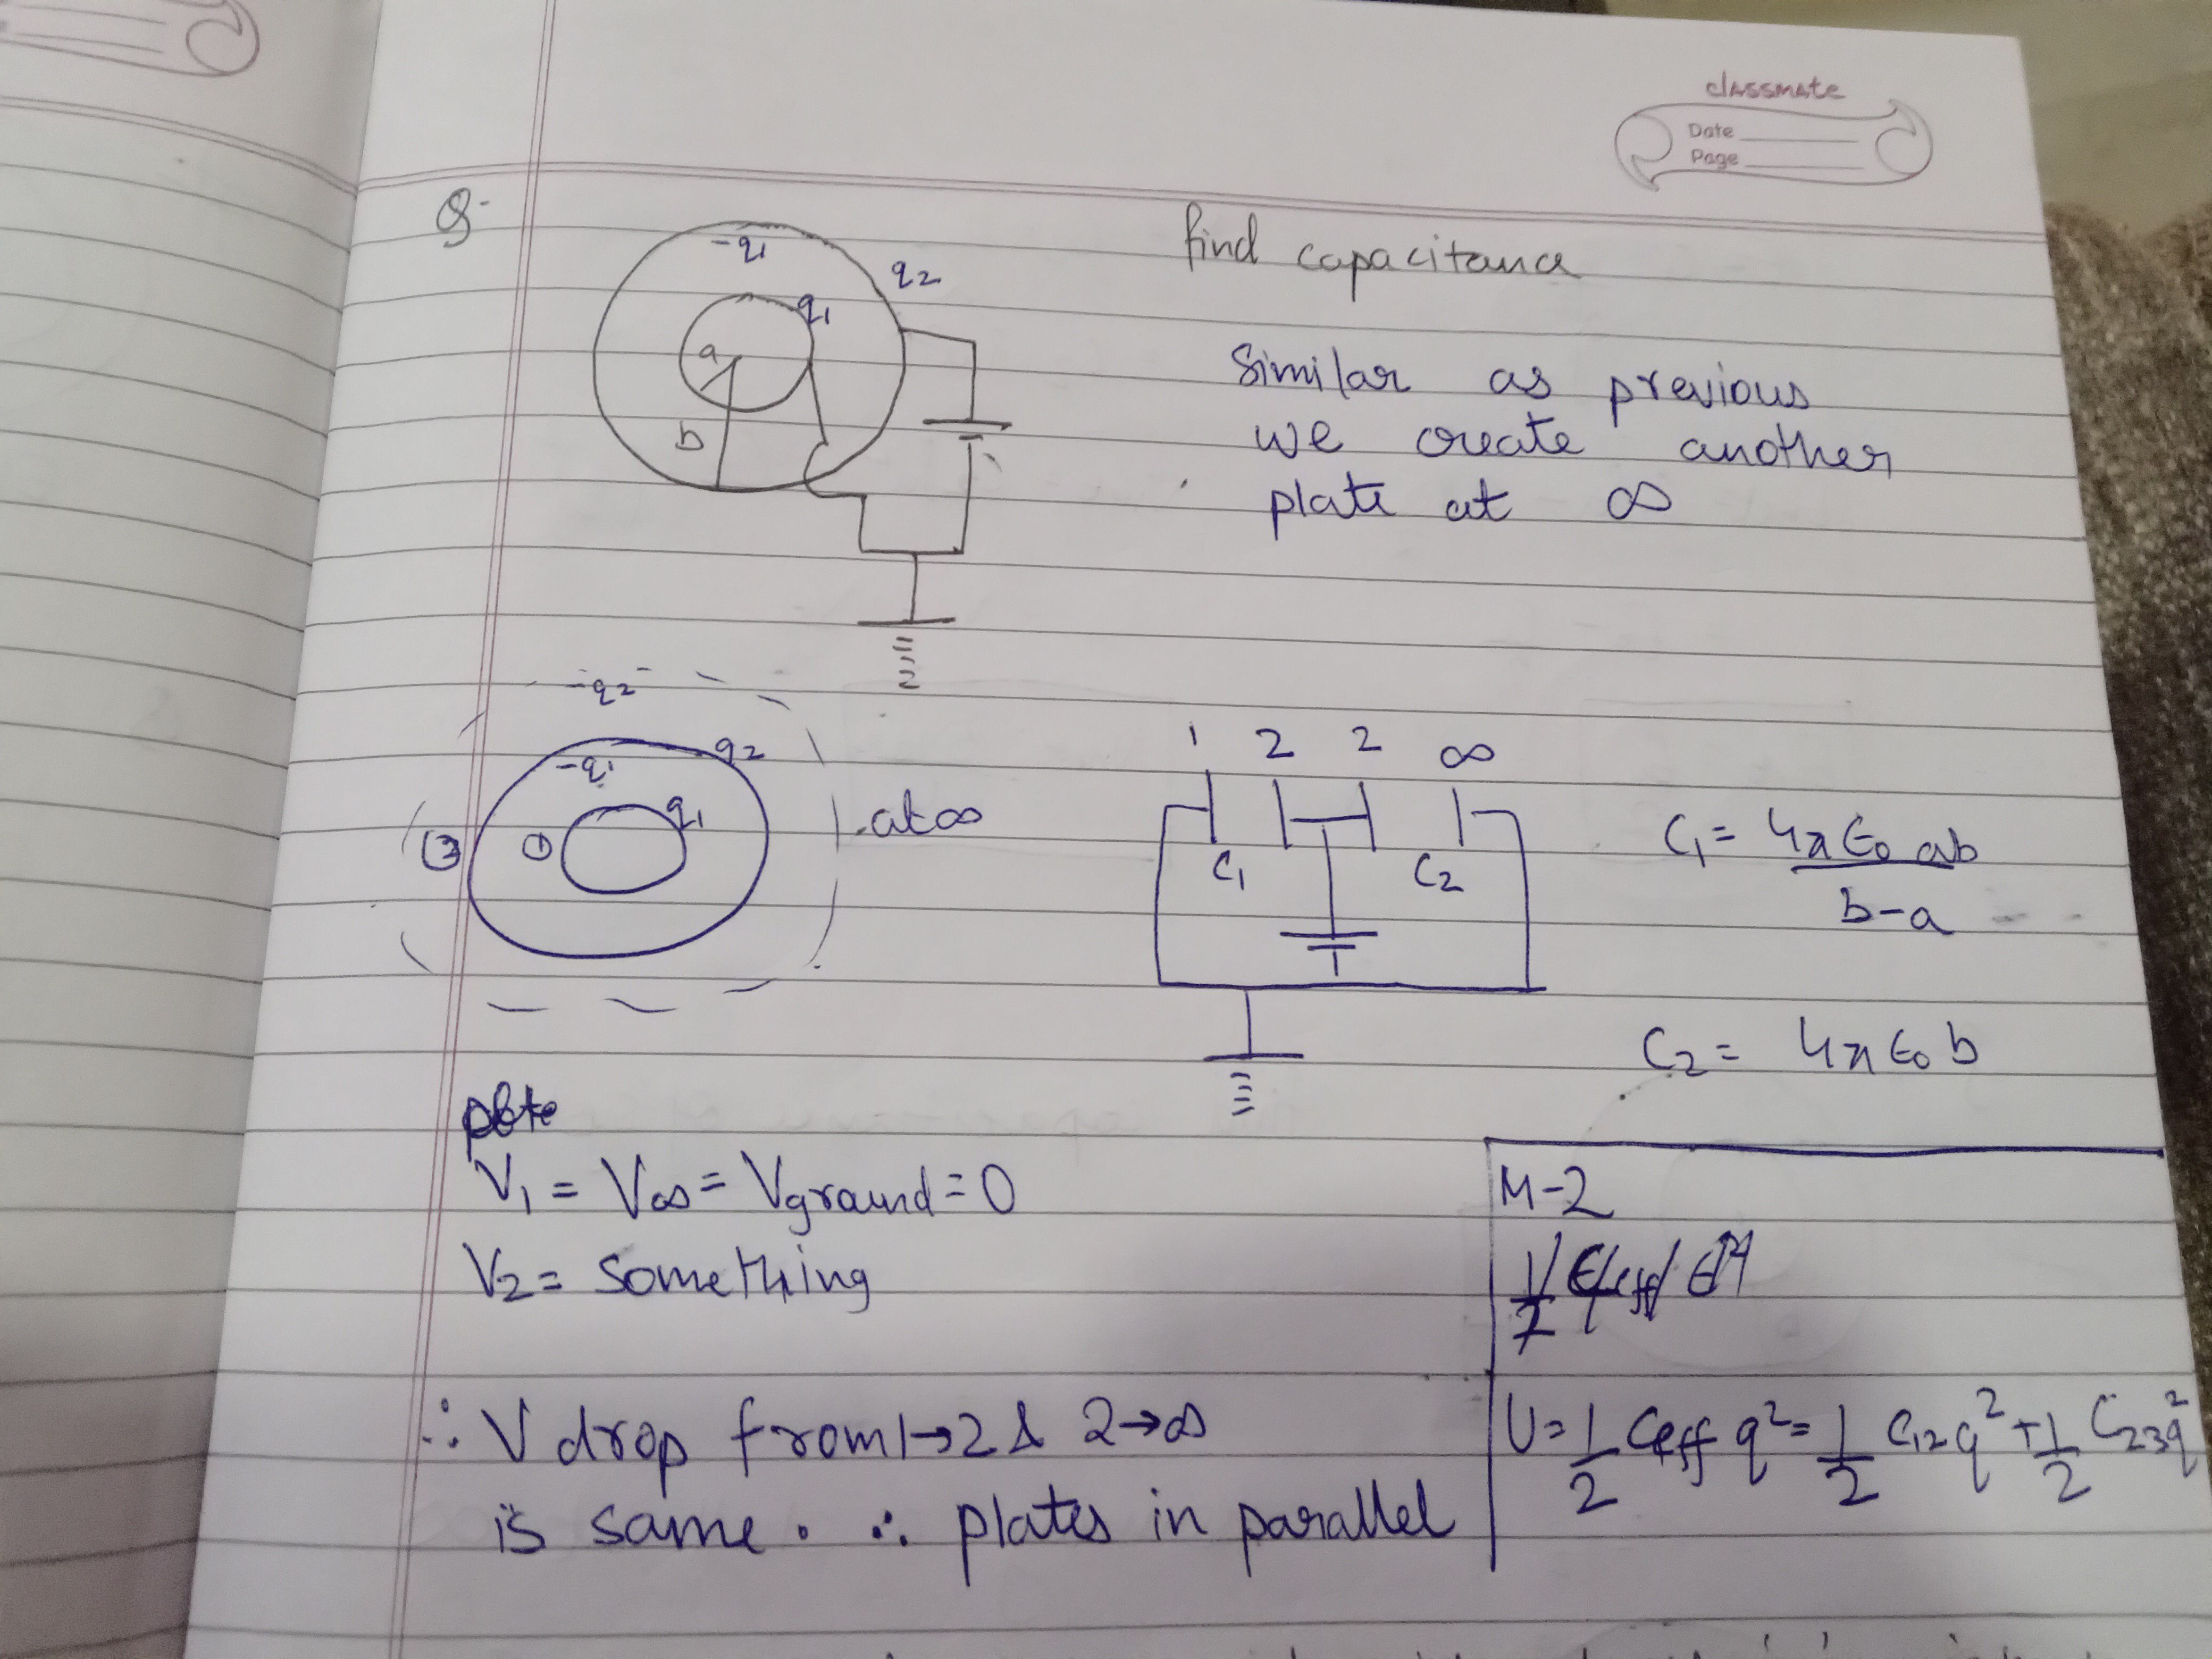 classmate
Date
Page
Q-
find capacitance
-q1
q2
q1
a
b
Similar as previous
we create another
plate at ∞
-q2
-q1
q2
q1
①
②
at ∞
1 2 2 ∞
C1
C2
C1 = 4πε0 ab
b-a
C2 = 4πε0 b
V1 = V∞ = Vground = 0
V2 = something
∴ V drop from 1→2 & 2→∞
is same. ∴ plates in parallel
M-2
U = 1/2 Ceff q² = 1/2 C12 q² + 1/2 C23 q²